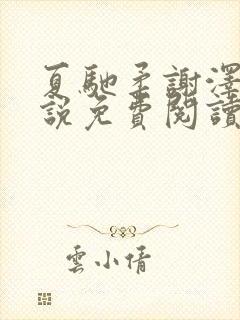 夏馳柔謝澤
說免費閱讀
雲小倩